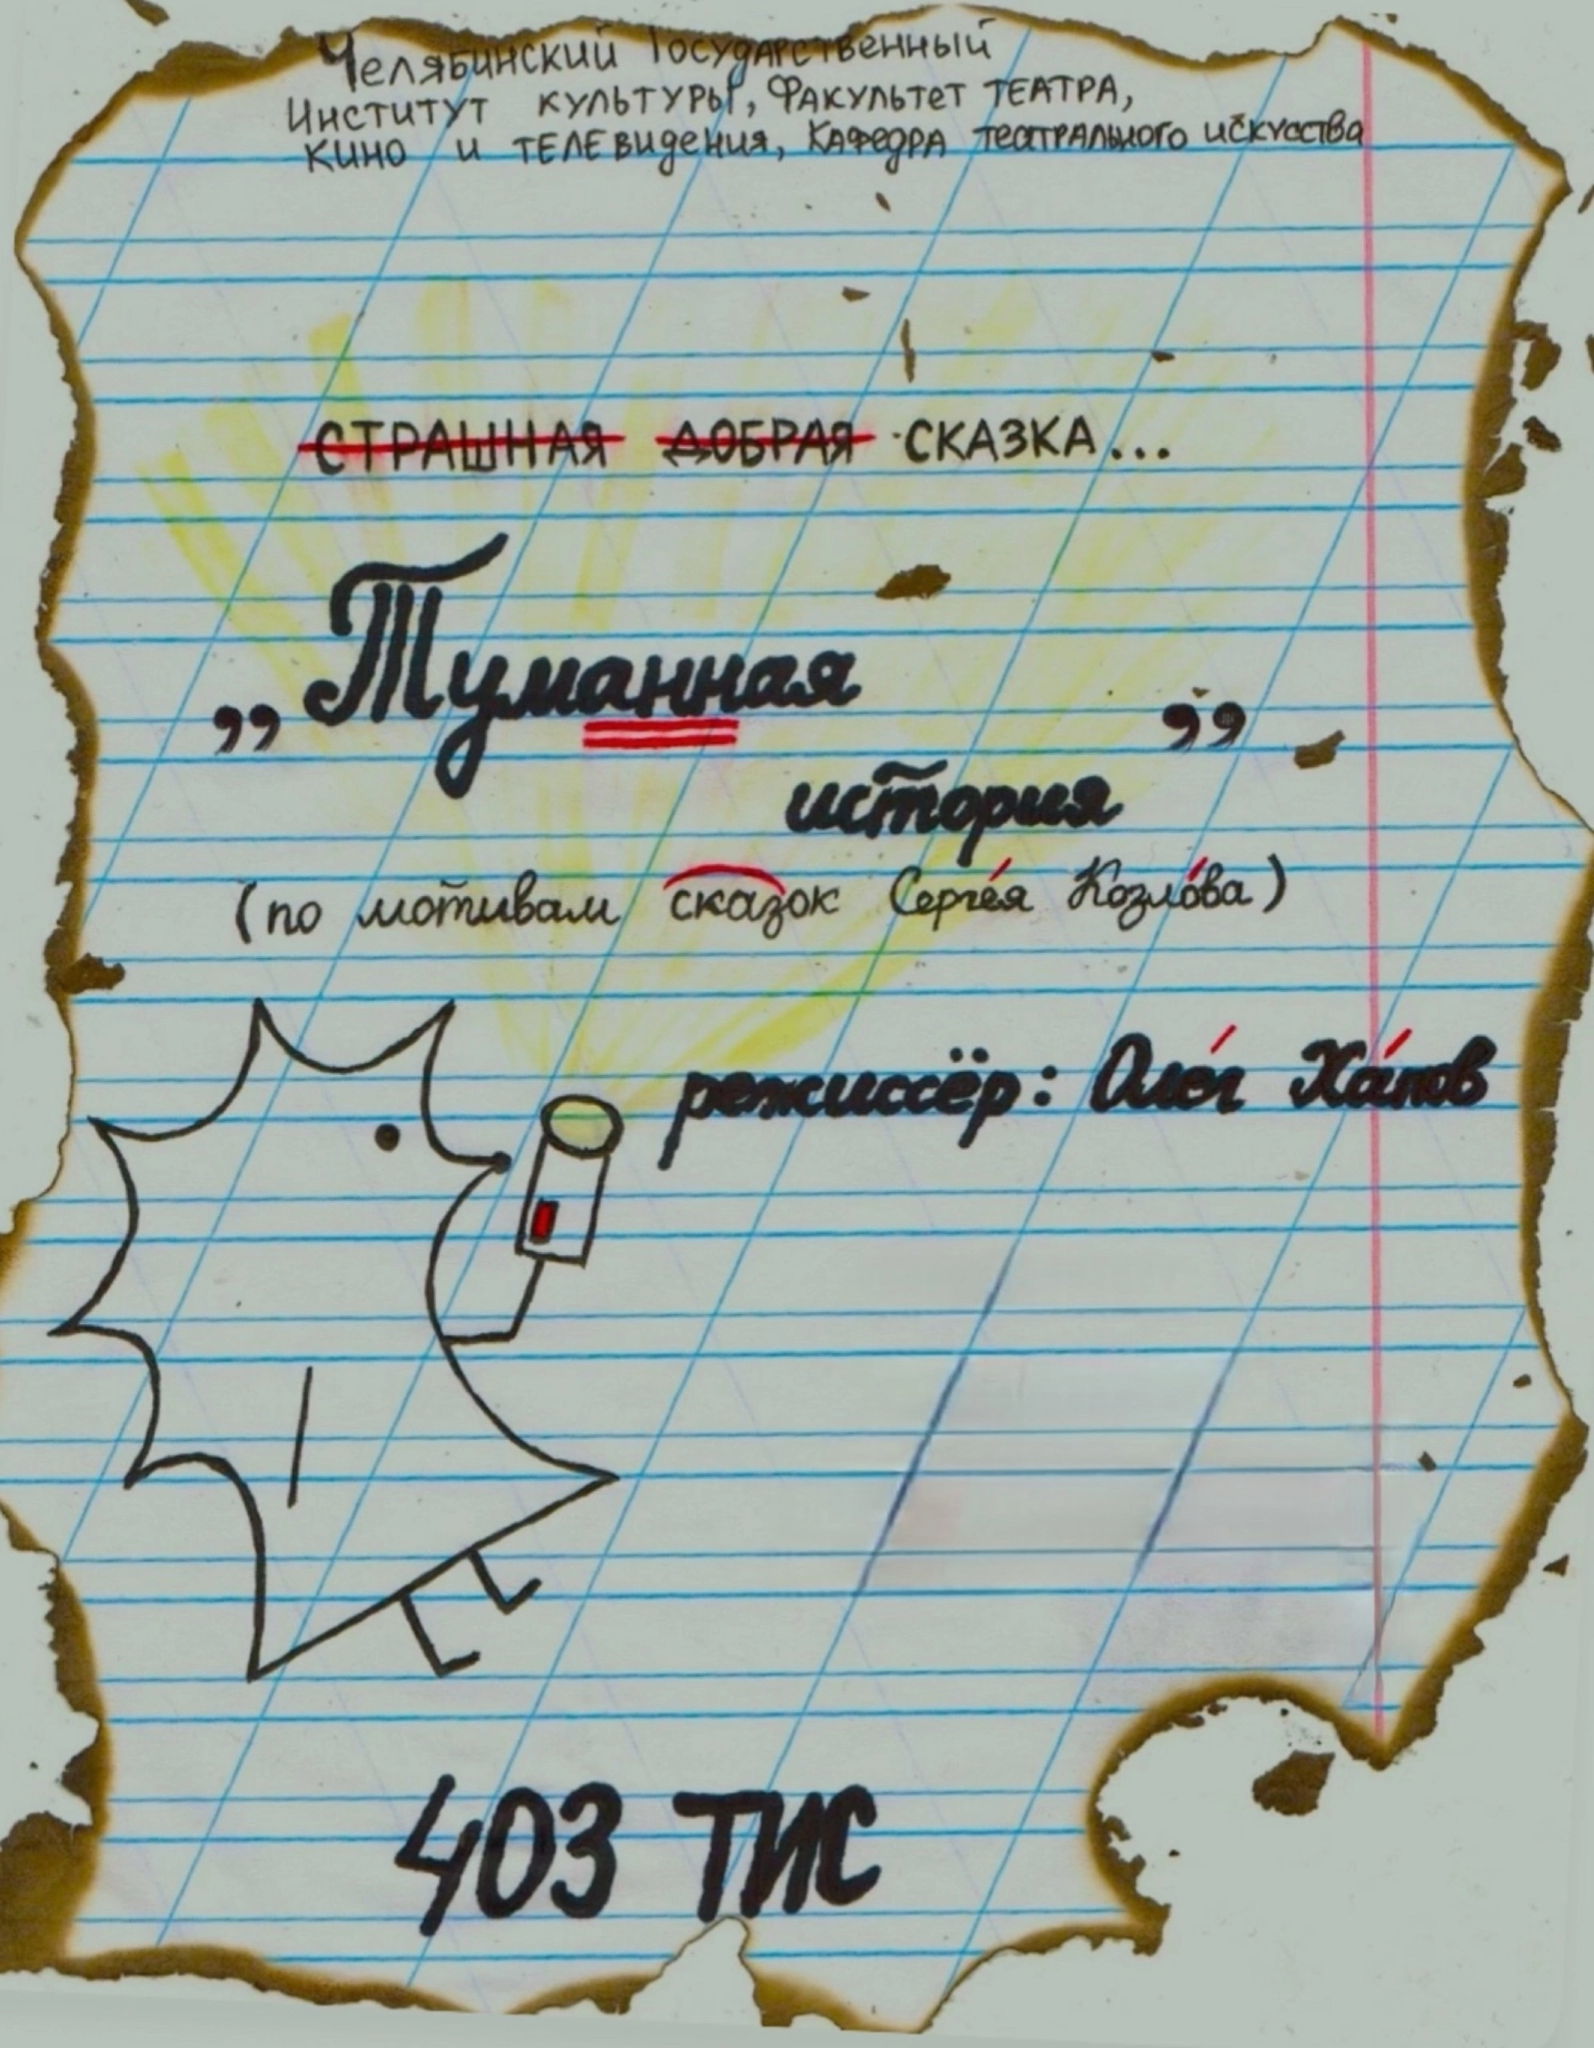 Челябинский Государственный
Институт культуры, Факультет театра,
кино и телевидения, Кафедра театрального искусства
СТРАШНАЯ ДОБРАЯ СКАЗКА...
„Туманная
история”
(по мотивам сказок Серге́я Козло́ва)
режиссёр: Оле́г Ха́пов
403 ТИС